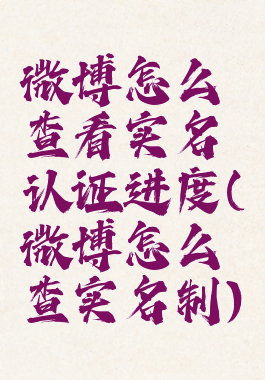 微博怎么
查看实名
认证进度(
微博怎么
查实名制)